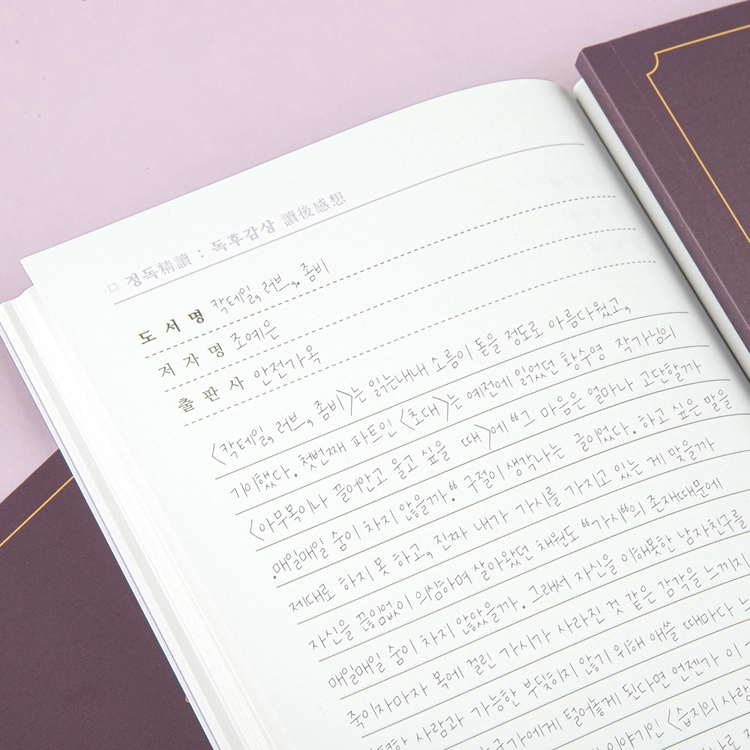 □ 정독精讀 : 독후감상 讀後感想
도서명 칵테일, 러브, 좀비
저자명 조예은
출판사 안전가옥
<칵테일, 러브, 좀비>는 읽는내내 소름이 돋을 정도로 아름다웠고,
기이했다. 첫번째 파트인 <초대>는 예전에 읽었던 황수영 작가님의
<아무목이나 끌어안고 울고 싶을 때>에 "그 마음은 얼마나 고단할까
.매일매일 숨이 차지 않을까" 구절이 생각나는 글이었다. 하고 싶은 말을
제대로 하지 못 하고, 진짜 내가 가시를 가지고 있는 게 맞을까
자신을 끊임없이 의심하며 살아왔던 채원도 "가시"의 존재때문에
매일매일 숨이 차지 않았을까. 그래서 자신을 이해못한 남자친구를
죽이자마자 목에 걸린 가시가 사라진 것 같은 감각을 느끼지
사람과 가능한 부딪히지 않기 위해 애쓸 때마다
털어놓게 된다면 언젠가 이
이야기인 <습지의 사랑